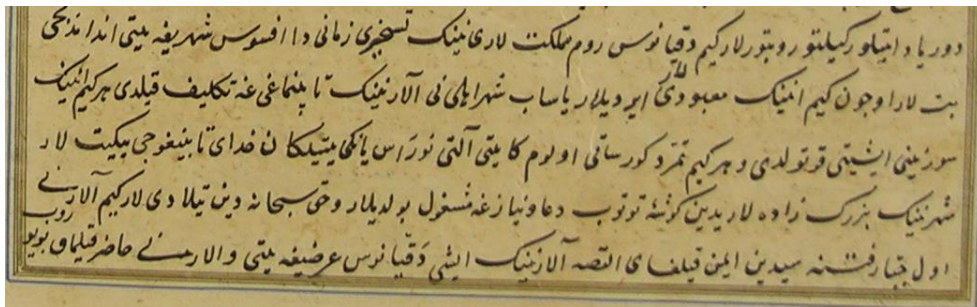 دور یاد ایتیلور کیلتوروبتورلار کیم دقیانوس روم مملکت لاری نینک تسخیری زمانی دا افسوس شهریغه یتی اندا
بت لار اوچون کیم انینک معبودی ایردیلار یاساب شهر اهلی نی آلارنینک تابینماغی غه تکلیف قیلدی هر کیم انینک
سوزینی ایشیتی قوتولدی و هر کیم تمرد کورساتی اولوم کا یتی آلتی نوراس یانکی یتیلکان خدای تابینغوچی ییکیت لار
شهرنینک بزرک زاده لاریدین کوشه توتوب دعا و نیازغه مشغول بولدیلار و حق سبحانه دین تیلادی لار کیم آلارنی
اول جبار فتنه سیدین ایمن قیلغای القصه آلارنینک ایشی دقیانوس عرضیغه یتی و الارنی حاضر قیلماق بویوروب